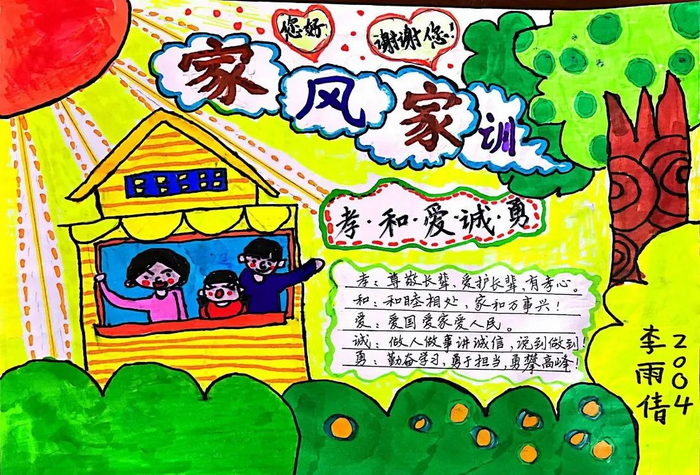 您好!
谢谢您!
家风家训
孝·和·爱·诚·勇
孝：尊敬长辈，爱护长辈，有孝心。
和：和睦相处，家和万事兴！
爱：爱国爱家爱人民。
诚：做人做事讲诚信，说到做到！
勇：勤奋学习，勇于担当，勇攀高峰！
2004
李雨倩